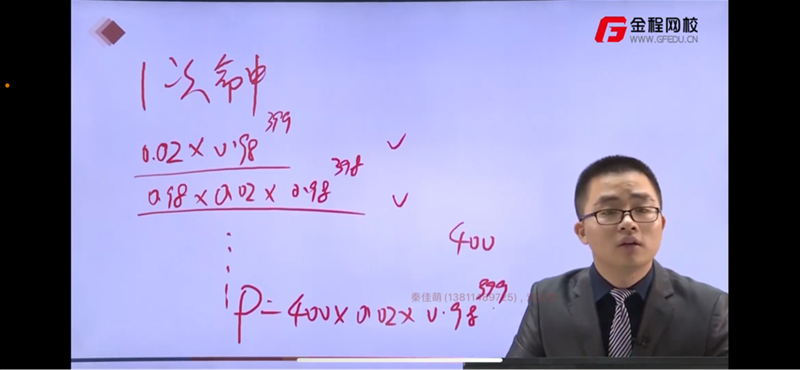 金程网校
WWW.GFEDU.CN
1次命中
0.02×0.98^399
0.98×0.02×0.98^398
400
P=400×0.02×0.98^399